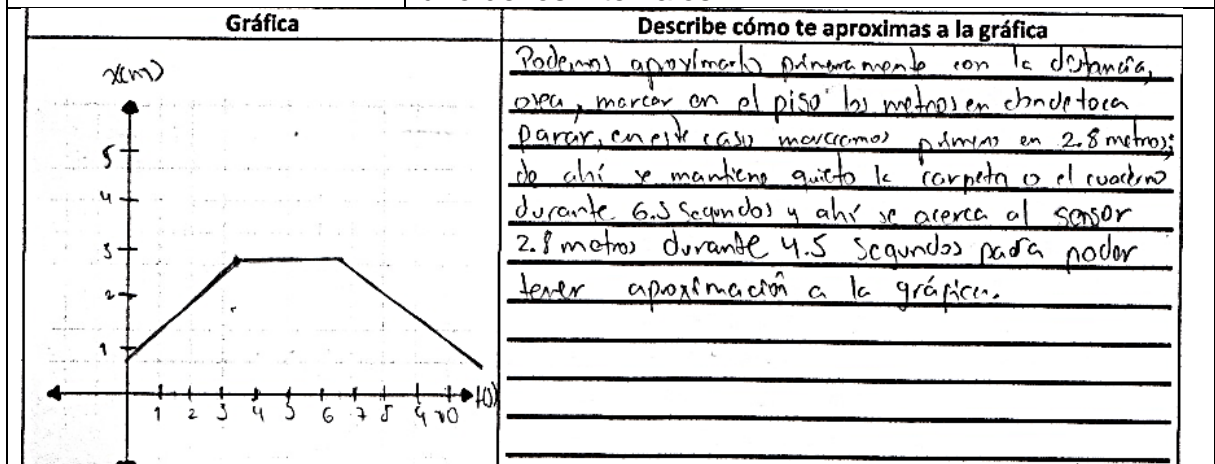 Gráfica
Describe cómo te aproximas a la gráfica
x(m)
5
4
3
2
1
1 2 3 4 5 6 7 8 9 10 t(s)
Podemos aproximarlo primeramente con la distancia,
osea, marcar en el piso los metros en donde toca
parar, en este caso marcamos primero en 2.8 metros;
de ahí se mantiene quieto la carpeta o el cuaderno
durante 6.5 segundos y ahí se acerca al sensor
2.8 metros durante 4.5 segundos para poder
tener aproximación a la gráfica.